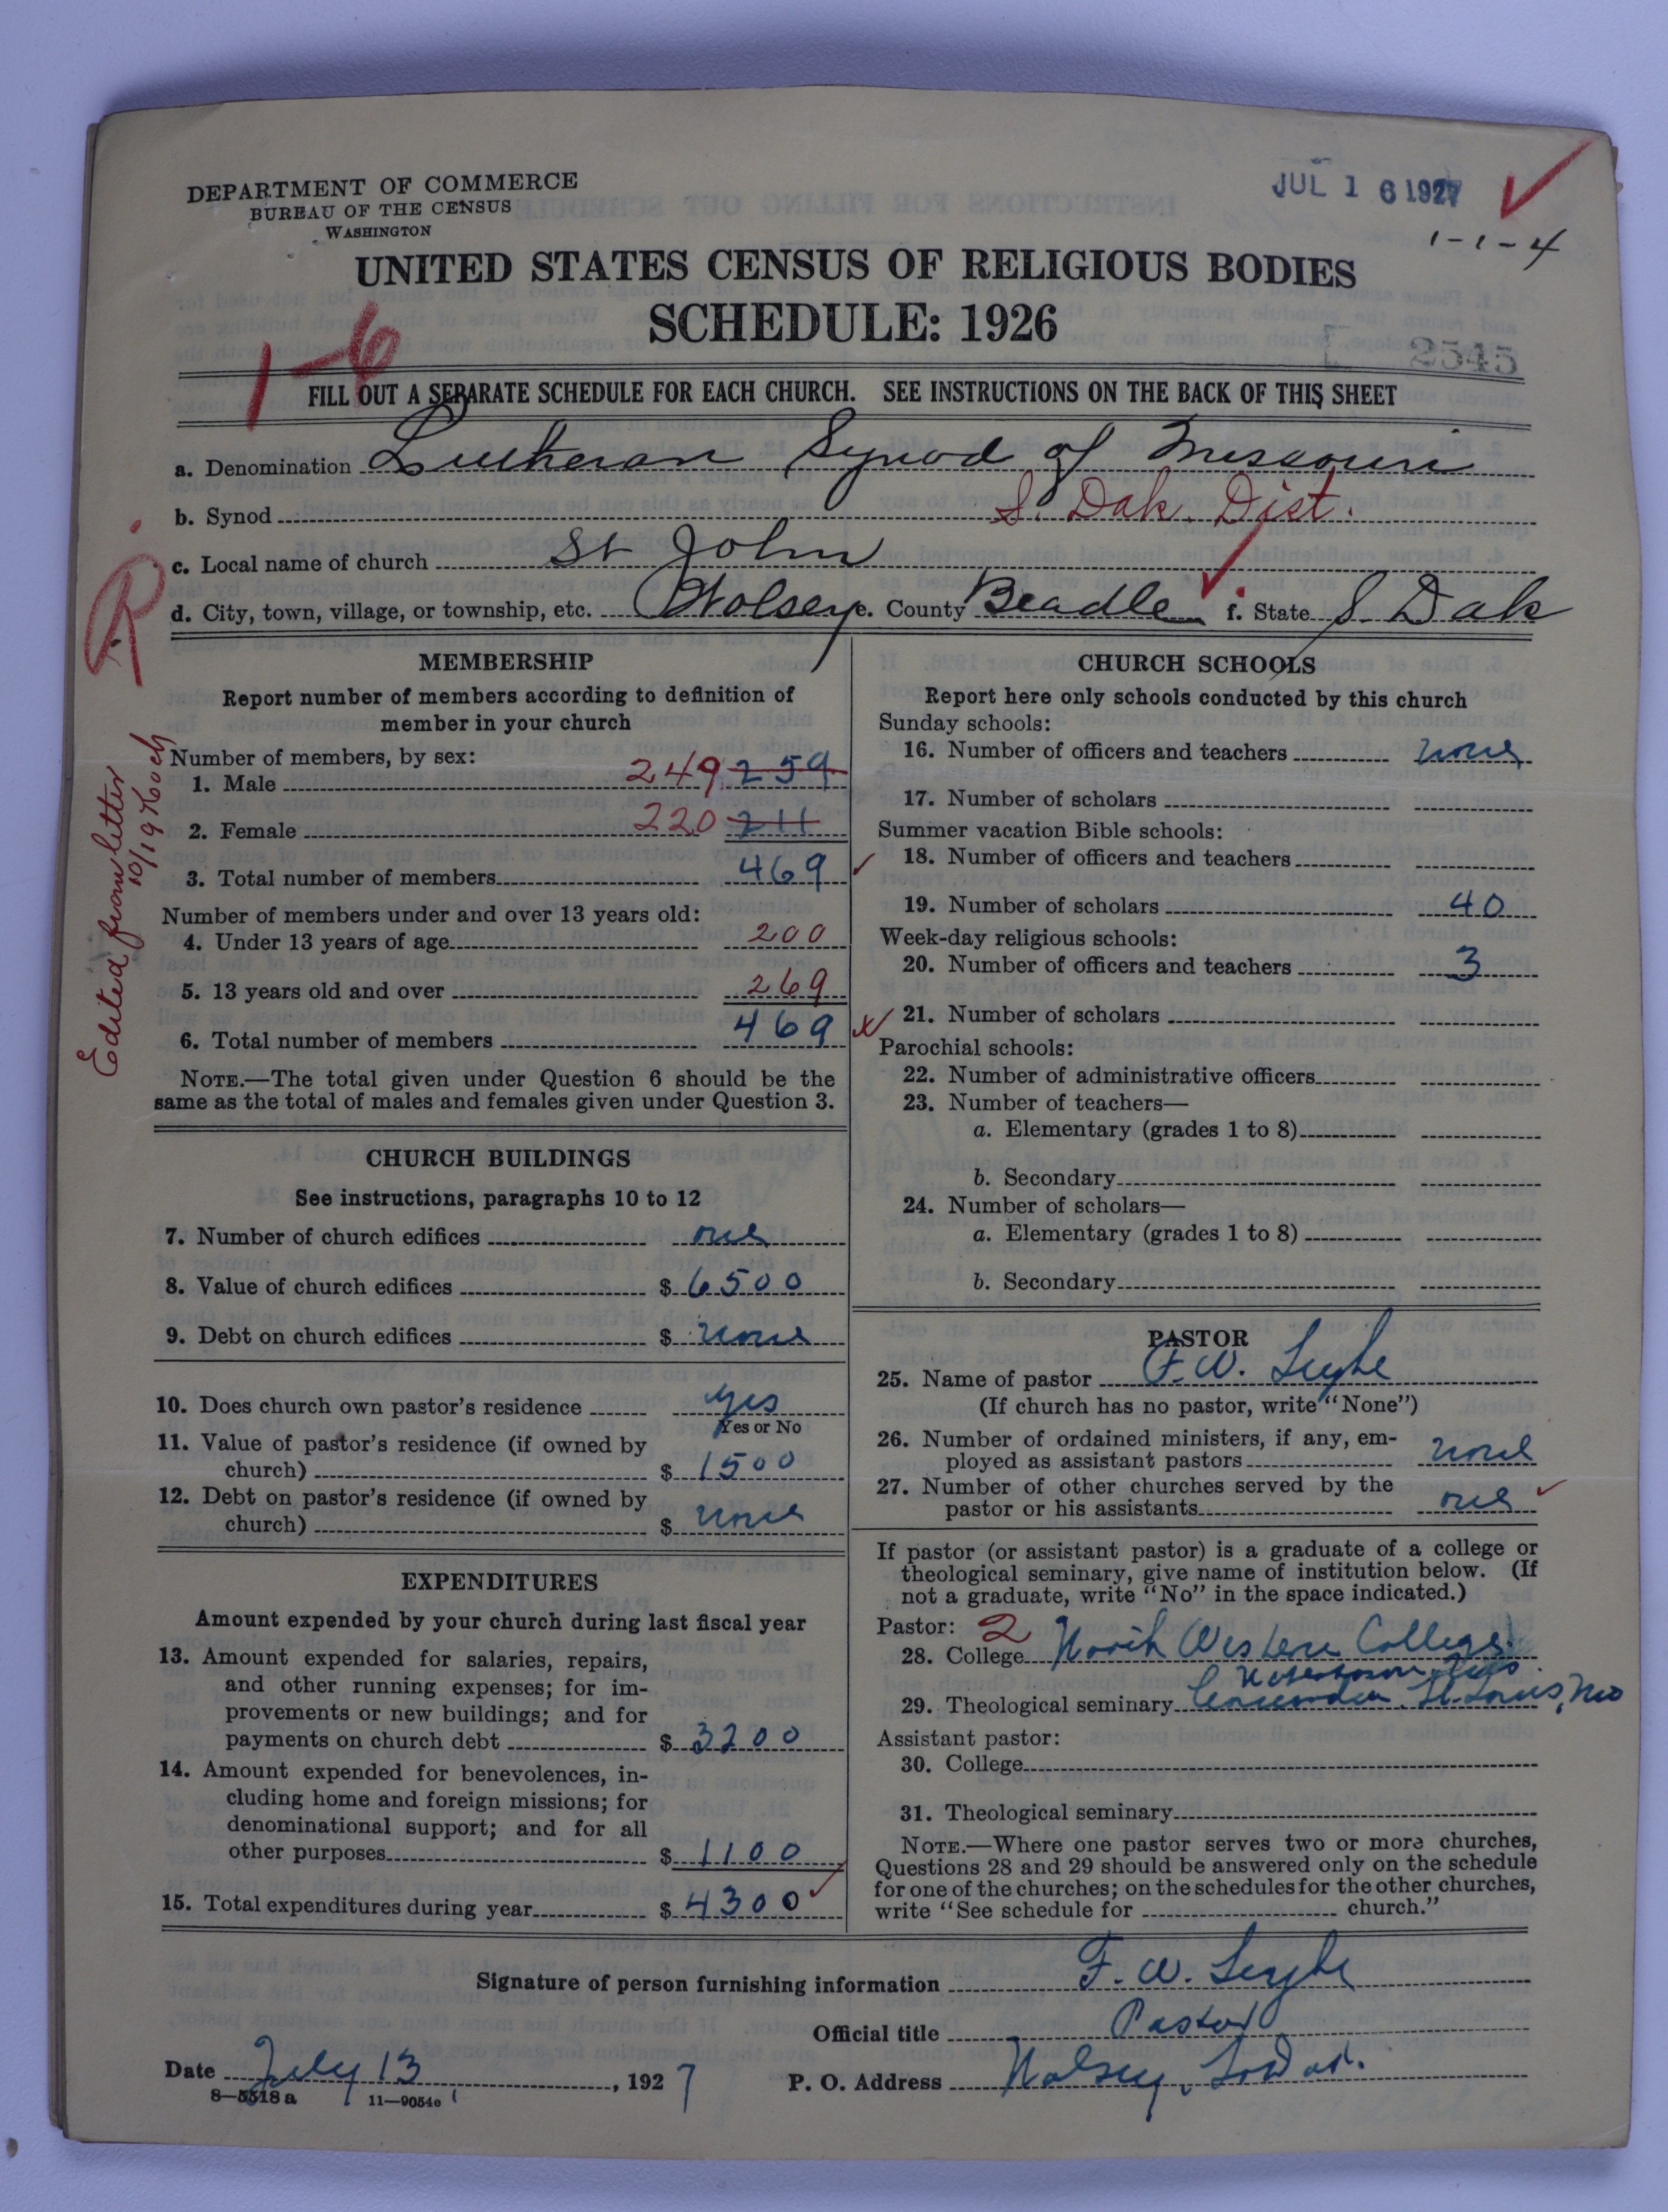 DEPARTMENT OF COMMERCE
BUREAU OF THE CENSUS
WASHINGTON
JUL 16 1927
1-1-4
UNITED STATES CENSUS OF RELIGIOUS BODIES
SCHEDULE: 1926
1-6
2545
FILL OUT A SEPARATE SCHEDULE FOR EACH CHURCH. SEE INSTRUCTIONS ON THE BACK OF THIS SHEET
a. Denomination Lutheran Synod of Missouri
b. Synod S. Dak. Dist.
c. Local name of church St John
d. City, town, village, or township, etc. Wolsey e. County Beadle f. State S. Dak
R
Edited from letter
10/19 Koch
MEMBERSHIP
Report number of members according to definition of
member in your church
Number of members, by sex:
1. Male 249 259
2. Female 220 211
3. Total number of members 469
Number of members under and over 13 years old:
4. Under 13 years of age 200
5. 13 years old and over 269
6. Total number of members 469
NOTE.—The total given under Question 6 should be the
same as the total of males and females given under Question 3.
CHURCH BUILDINGS
See instructions, paragraphs 10 to 12
7. Number of church edifices one
8. Value of church edifices $ 6500
9. Debt on church edifices $ none
10. Does church own pastor's residence yes
Yes or No
11. Value of pastor's residence (if owned by
church) $ 1500
12. Debt on pastor's residence (if owned by
church) $ none
EXPENDITURES
Amount expended by your church during last fiscal year
13. Amount expended for salaries, repairs,
and other running expenses; for im-
provements or new buildings; and for
payments on church debt $ 3200
14. Amount expended for benevolences, in-
cluding home and foreign missions; for
denominational support; and for all
other purposes $ 1100
15. Total expenditures during year $ 4300
CHURCH SCHOOLS
Report here only schools conducted by this church
Sunday schools:
16. Number of officers and teachers none
17. Number of scholars
Summer vacation Bible schools:
18. Number of officers and teachers
19. Number of scholars 40
Week-day religious schools:
20. Number of officers and teachers 3
21. Number of scholars
Parochial schools:
22. Number of administrative officers
23. Number of teachers—
a. Elementary (grades 1 to 8)
b. Secondary
24. Number of scholars—
a. Elementary (grades 1 to 8)
b. Secondary
PASTOR
25. Name of pastor F. W. Leyhe
(If church has no pastor, write "None")
26. Number of ordained ministers, if any, em-
ployed as assistant pastors none
27. Number of other churches served by the
pastor or his assistants one
If pastor (or assistant pastor) is a graduate of a college or
theological seminary, give name of institution below. (If
not a graduate, write "No" in the space indicated.)
Pastor: 2
28. College North Western College
Watertown, Wis.
29. Theological seminary Concordia St. Louis, Mo
Assistant pastor:
30. College
31. Theological seminary
NOTE.—Where one pastor serves two or more churches,
Questions 28 and 29 should be answered only on the schedule
for one of the churches; on the schedules for the other churches,
write "See schedule for church."
Signature of person furnishing information F. W. Leyhe
Official title Pastor
Date July 13, 1927
P. O. Address Wolsey, So Dak.
8—5518 a 11—9054c